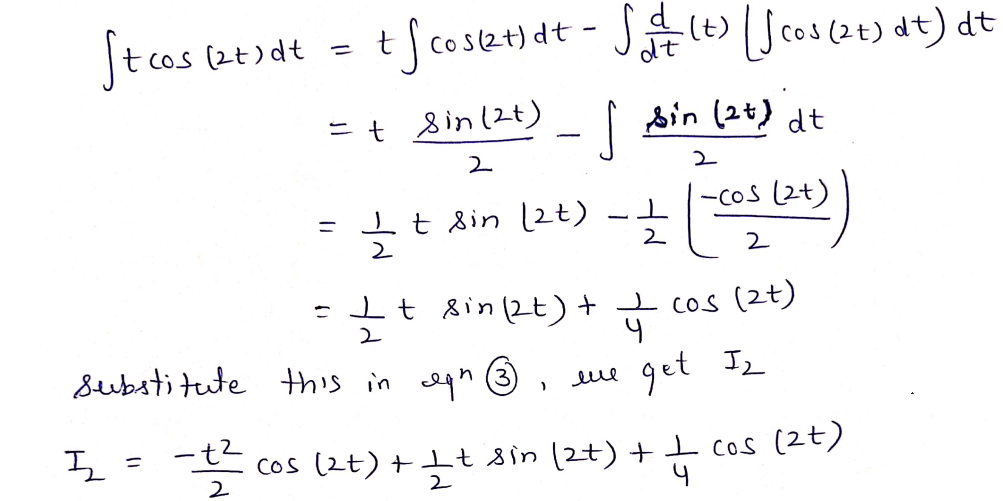 ∫t cos (2t) dt = t ∫ cos(2t) dt - ∫ d/dt (t) (∫ cos (2t) dt) dt
= t sin(2t)/2 - ∫ sin (2t)/2 dt
= 1/2 t sin (2t) - 1/2 (-cos (2t)/2)
= 1/2 t sin(2t) + 1/4 cos (2t)
substitute this in eqn ③, we get I₂
I₂ = -t²/2 cos (2t) + 1/2 t sin (2t) + 1/4 cos (2t)